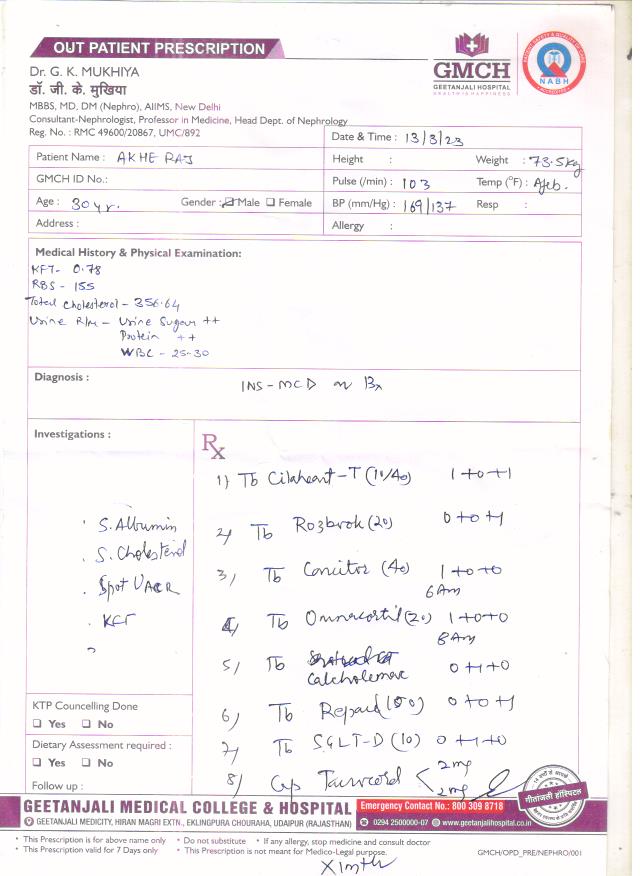 OUT PATIENT PRESCRIPTION
GMCH
GEETANJALI HOSPITAL
HEALTH IS HAPPINESS
NABH
Dr. G. K. MUKHIYA
डॉ. जी. के. मुखिया
MBBS, MD, DM (Nephro), AIIMS, New Delhi
Consultant-Nephrologist, Professor in Medicine, Head Dept. of Nephrology
Reg. No. : RMC 49600/20867, UMC/892
Date & Time : 13/3/23
Patient Name : AKHE RAJ
Height : Weight : 73.5kg
GMCH ID No.:
Pulse (/min) : 103 Temp (°F) : Afeb.
Age : 30 yr. Gender : Male Female
BP (mm/Hg) : 169/137 Resp :
Address :
Allergy :
Medical History & Physical Examination:
KFT- 0.78
RBS - 155
Total Cholesterol - 356.64
Urine R/m - Urine Sugar ++
Protein ++
WBC - 25-30
Diagnosis : INS-MCD on Bx
Investigations :
S. Albumin
S. Cholesterol
Spot UACR
KFT
Rx
1) Tb Cilaheart-T (10/40) 1+0+1
2) Tb Rozbrok (20) 0+0+1
3) Tb (40) 1+0+0
6 Am
4) Tb Omnacortil (20) 1+0+0
8 Am
5) Tb
0+1+0
6) Tb 0+0+1
7) Tb SGLT-D (10) 0+1+0
8) Cap 2mg
2mg
KTP Councelling Done
Yes No
Dietary Assessment required :
Yes No
Follow up :
गीतांजली हॉस्पिटल
GEETANJALI MEDICAL COLLEGE & HOSPITAL
Emergency Contact No.: 800 309 8718
GEETANJALI MEDICITY, HIRAN MAGRI EXTN., EKLINGPURA CHOURAHA, UDAIPUR (RAJASTHAN)
0294 2500000-07 www.geetanjalihospital.co.in
• This Prescription is for above name only • Do not substitute • If any allergy, stop medicine and consult doctor
• This Prescription valid for 7 Days only • This Prescription is not meant for Medico-Legal purpose.
GMCH/OPD_PRE/NEPHRO/001
X 1mth